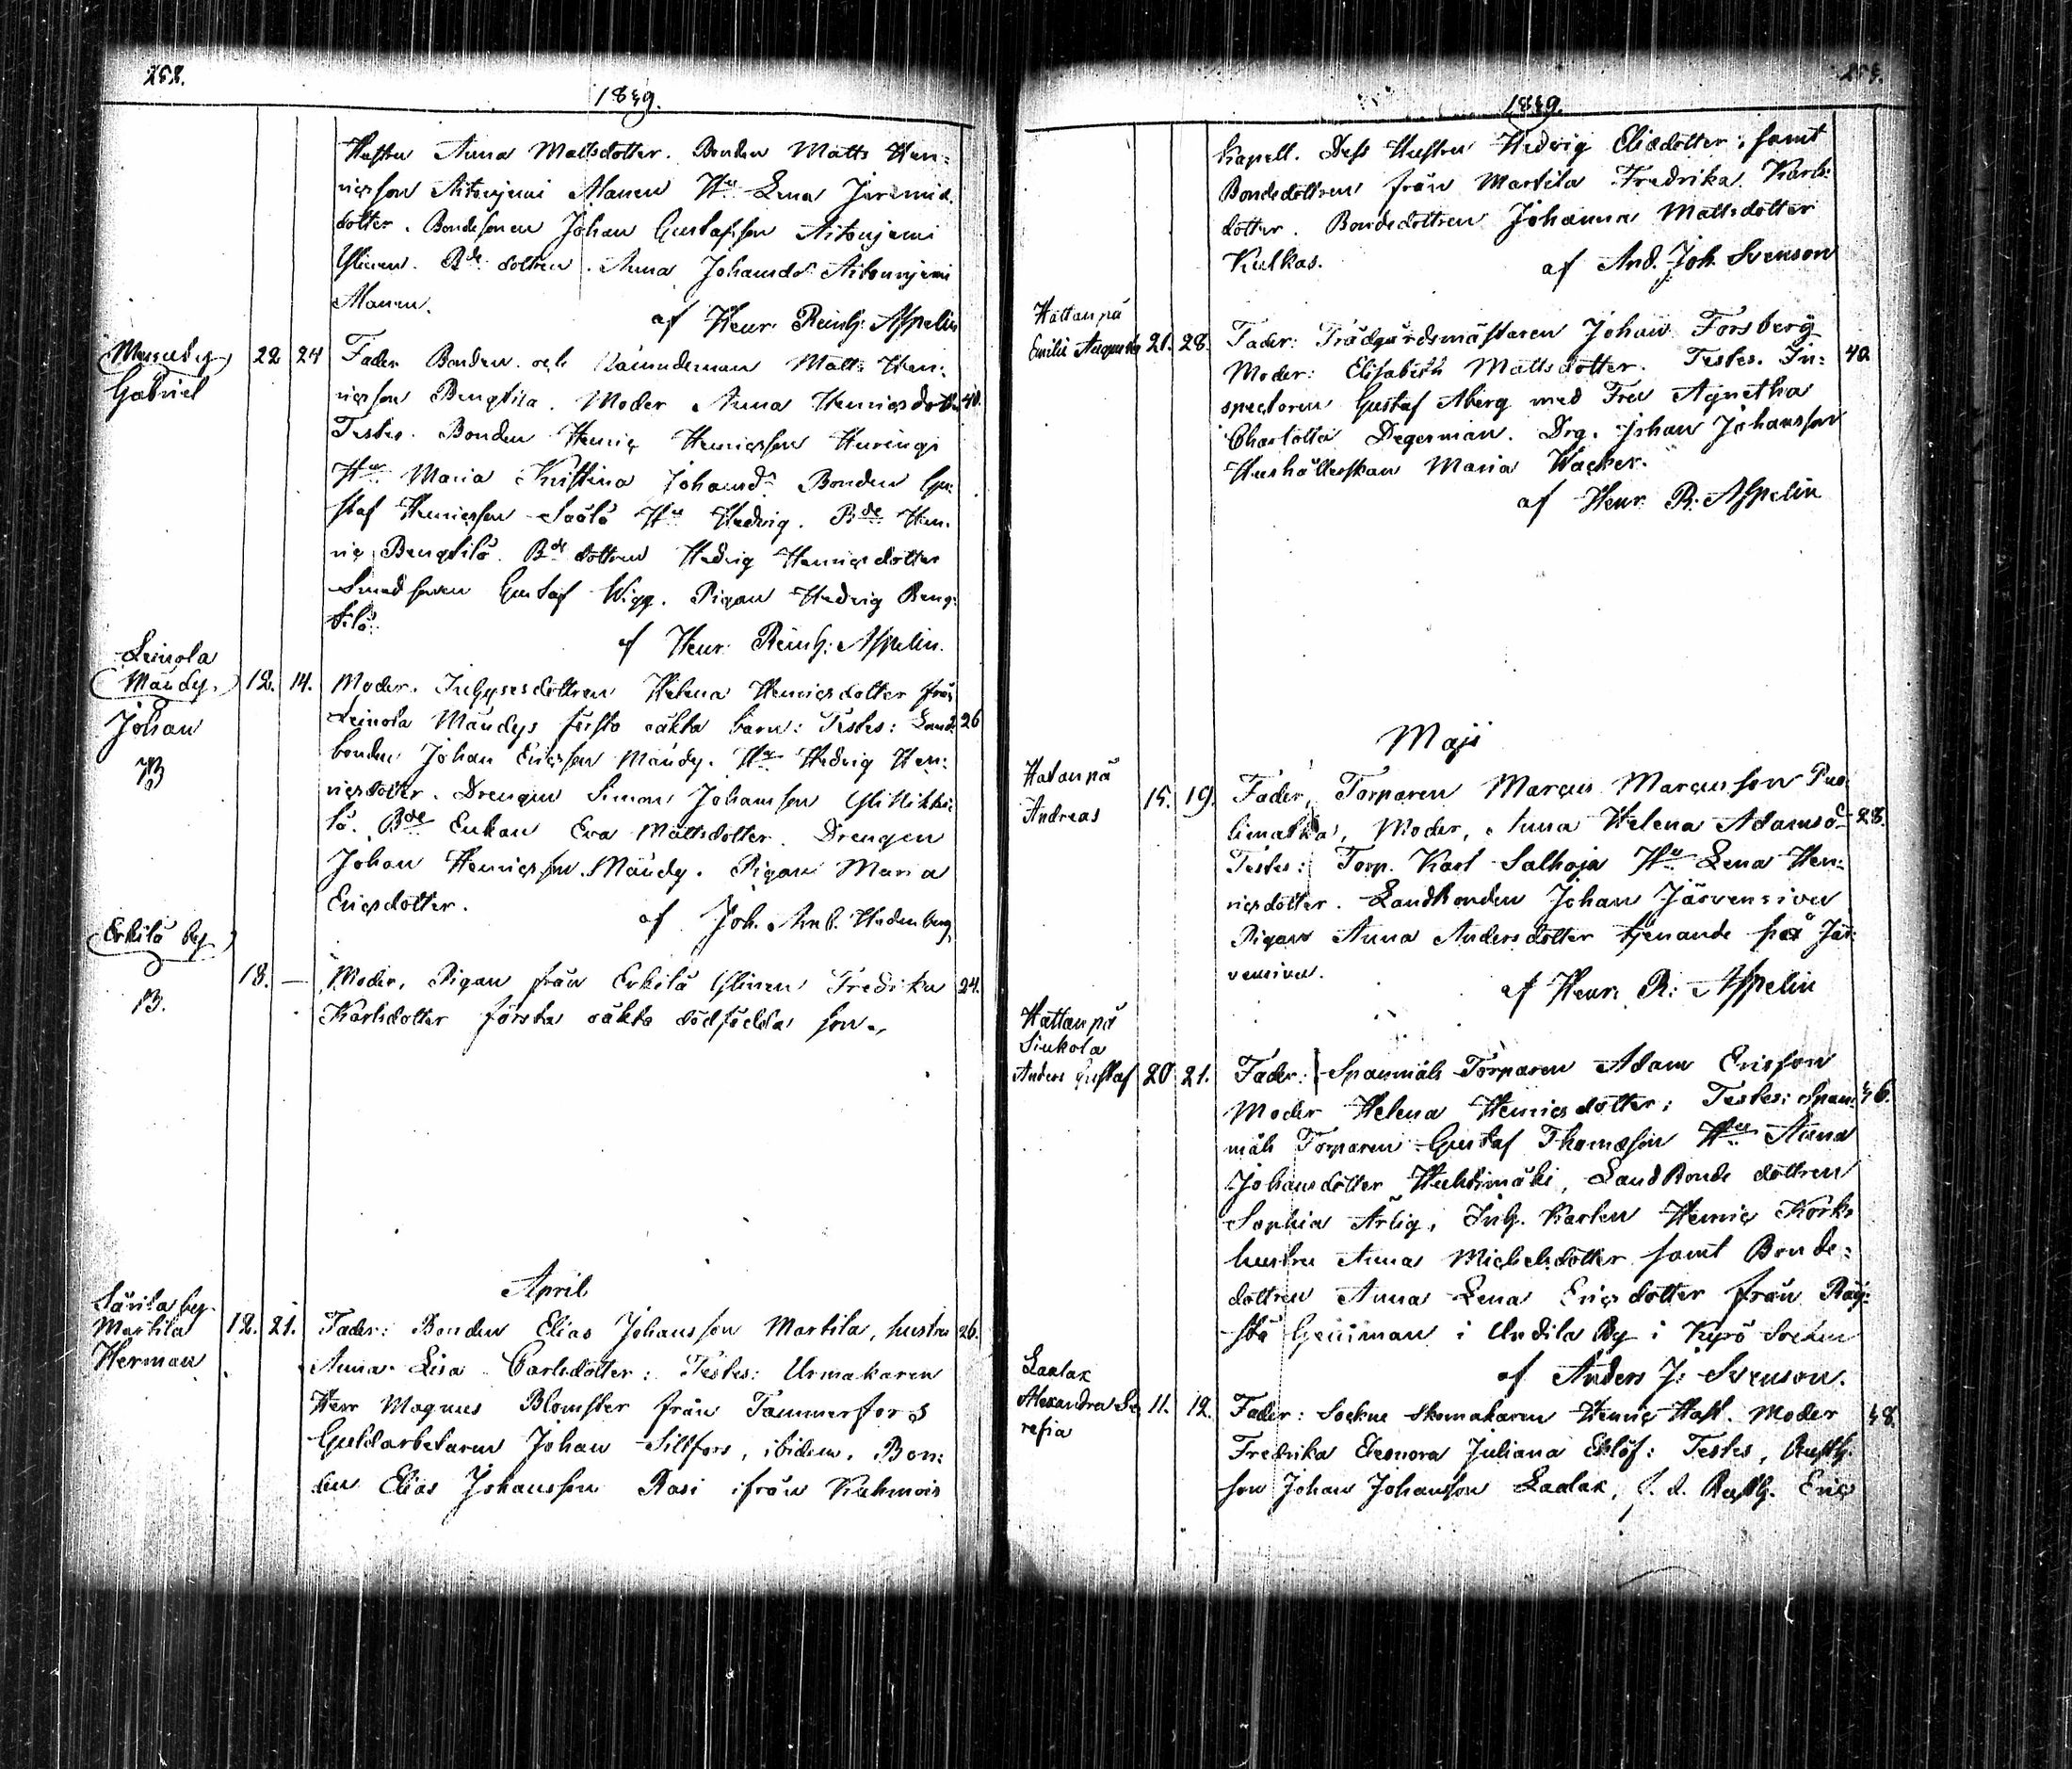 252.
1849.
Hustru Anna Mattsdotter. Bonden Matts Hen:
ricsson Aitoniemi Manen Hu Lena Jeremid.
dotter. Bondesonen Johan Gustafsson Aitoniemi
Ylinen. Bde dottren Anna Johansdr Aitoniemi
Manen.
af Henr. Reinh: Aspelin
by
Gabriel
22 24 Fader Bonden och Nämndeman Matts Hen:
ricsson Bengtila. Moder Anna Henricsdotter 40.
Testes. Bonden Henric Henricsson Huringi
Hu Maria Kristina Johansdr Bonden Gu:
staf Henricsson Hu Hedvig. Bde Hen:
ric Bengtilä. Bde dottren Hedvig Henricsdotter
Smedsonen Gustaf Wigg. Pigan Hedvig Beng:
tilä.
af Henr. Reinh: Aspelin.
Leinola
Mändy.
Johan
B
12. 14. Moder. Inhysesdottren Helena Henricsdotter från
Leinola Mändys första oäkta barn: Testes: Land: 26
bonden Johan Ericsson Mändy. Hu Hedvig Hen:
ricsdotter. Drengen Simon Johansson Yli
lä. Bde Enkan Eva Mattsdotter. Drengen
Johan Henricsson Mändy. Pigan Maria
Ericsdotter.
af Joh. Hedenberg
Erkilä by
B.
18. — Moder, Pigan från Erkilä Ylinen Fredrika 24.
Karlsdotter första oäkta dödfödda son.
April
Särila by
Martila
Herman
12. 21. Fader: Bonden Elias Johansson Martila, hustru 26.
Anna Lisa Carlsdotter: Testes: Urmakaren
Herr Magnus Blomster från Tammerfors
Guldarbetaren Johan Sillfors, ibidem, Bon:
den Elias Johansson Rasi ifrån Kuhmois
1849.
Kapell. Dess Hustru Hedvig Eliædotter, samt
Bondedottren från Martila Fredrika Karls:
dotter. Bondedottren Johanna Mattsdotter
Kulkas.
af And. Joh. Svenson
Hattanpä
Emilie Augusta 21. 28. Fader: Trädgårdsmästaren Johan Forsberg
Moder: Elisabeth Mattsdotter. Testes. In: 40
spectoren Gustaf Aberg med Fru Agnetha
Charlotta Degerman. Drg. Johan Johansson
Hushållerskan Maria Wacker.
af Henr. R. Aspelin
Maji
Hatanpä
Andreas
15. 19. Fader, Torparen Marcus Marcusson Puo
limatka, Moder, Anna Helena Adamsd 28.
Testes: Torp. Karl Salhoja Hu Lena Hen:
ricsdotter. Landbonden Johan Järvensivu
Pigan Anna Andersdotter tjenande på Jär:
vensivu.
af Henr. R: Aspelin
Hattanpä
Siukola
Anders Gustaf 20 21. Fader: Spanmåls Torparen Adam Ericsson
Moder Helena Henricsdotter; Testes: Span: 46.
måls Torparen Gustaf Thomæson Hu Anna
Johansdotter Huhtimäki, Landbonde dottren
Sophia Ärlig, Inh. Karlen Henric Körk
hustru Anna Michelsdotter samt Bonde:
dottren Anna Lena Ericsdotter från Räy:
i By i Kyrö Socken
af Anders J: Svenson.
Laalax
Alexandra Se
rafia
11. 12. Fader: Sockne skomakaren Henric Hast. Moder 48
Fredrika Eleonora Juliana Eklöf: Testes, Rusth.
son Johan Johansson Laalax, f. d. Rusth. Eric